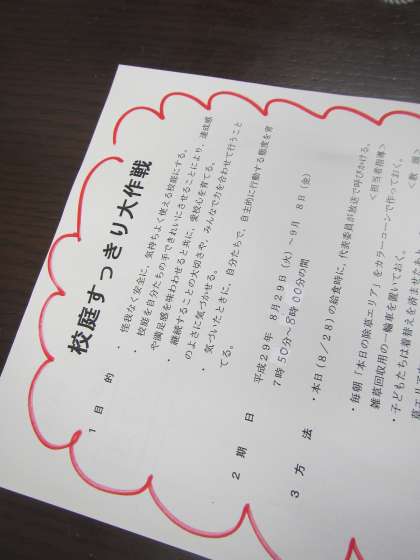 校庭すっきり大作戦
1 目 的
・ 怪我なく安全に、気持ちよく使える校庭にする。
・ 校庭を自分たちの手できれいにさせることにより、達成感
や満足感を味わわせると共に、愛校心を育てる。
・ 継続することの大切さや、みんなで力を合わせて行うこと
のよさに気づかせる。
・ 気づいたときに、自分たちで、自主的に行動する態度を育
てる。
2 期 日
平成29年 8月29日（火）～9月 8日（金）
7時50分～8時00分の間
3 方 法
・本日（8/28）の給食時に、代表委員が放送で呼びかける。
＜担当者指導＞
・毎朝「本日の除草エリア」をカラーコーンで作っておく。
雑草回収用の一輪車を置いておく。
・子どもたちは着替えを済ませたあ
草エリア